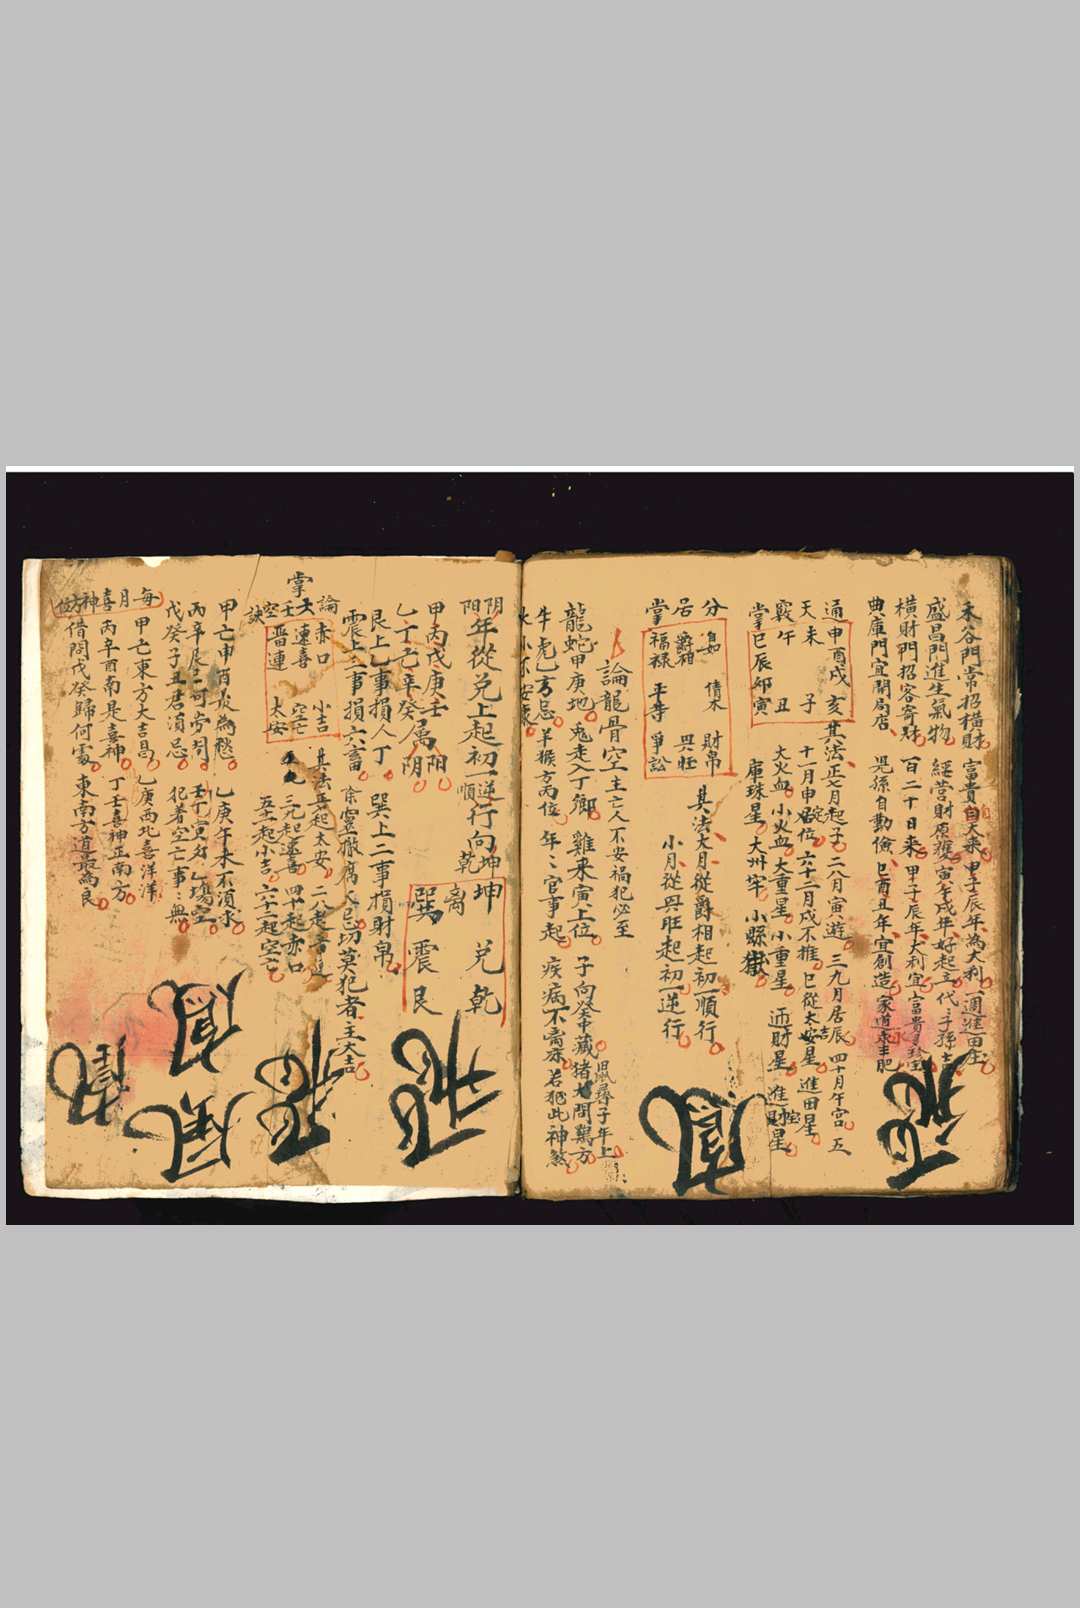 禾谷門常招橫財 富貴自天來 甲子辰年為大利 進田庄
盛昌門進生氣物 經營財原穫 寅午戌年好起立 代〻子孫
橫財門招客寄財 百二十日來 甲子辰年大利宜 富貴
典庫門宜開局店 兒孫自勤儉 巳酉丑年宜創造 家道永丰肥
通天竅掌
申酉戌 亥
未 子
午 丑
巳辰卯寅
其法正七月起子 二八月寅遊 三九月居辰 四十月午宮 五
十一月申居位 六十二月戌不推 巳從大安星 進田星
大火血 小火血 大重星 小重星 逥財星 進財星
庫珠星 大州牢 小縣獄
分居掌
債木 財帛
爵相 興旺
福祿 平等 爭訟
其法大月從爵相起初一順行
小月從興旺起初一逆行
論龍骨空 主亡人不安禍犯必至
龍蛇甲庚地 兔走入丁鄉 雞來寅上位 子向癸中藏 猪 問萬方
鼠尋子年上
牛虎乙方忌 羊猴方丙位 年〻官事起 疾病不离床 若犯此神煞
小不安康
阴阳年從兑上起初一逆順行向坤乾
坤 兑 乾
离
巽 震 艮
甲丙戊庚壬属阳
乙丁己辛癸属阴
艮上乙事損人丁 巽上二事損財帛
震上二事損六畜 除靈撤 切莫犯者主大吉
論大壬空掌訣
赤口 小吉
連喜 空亡
晋連 太安
其法正七起太安 二八起晋連
三九起連喜 四十起赤口
五十一起小吉 六十二起空亡
甲己申酉最為愁 乙庚午未不須求
丙辛辰巳何劳問 壬丁寅夘 塲空
戊癸子丑君須忌 犯着空亡事〻無
每月喜神方位
甲己東方大吉昌 乙庚西北喜洋洋
丙辛酉南是喜神 丁壬喜神正南方
借問戊癸歸何處 東南方道最為良